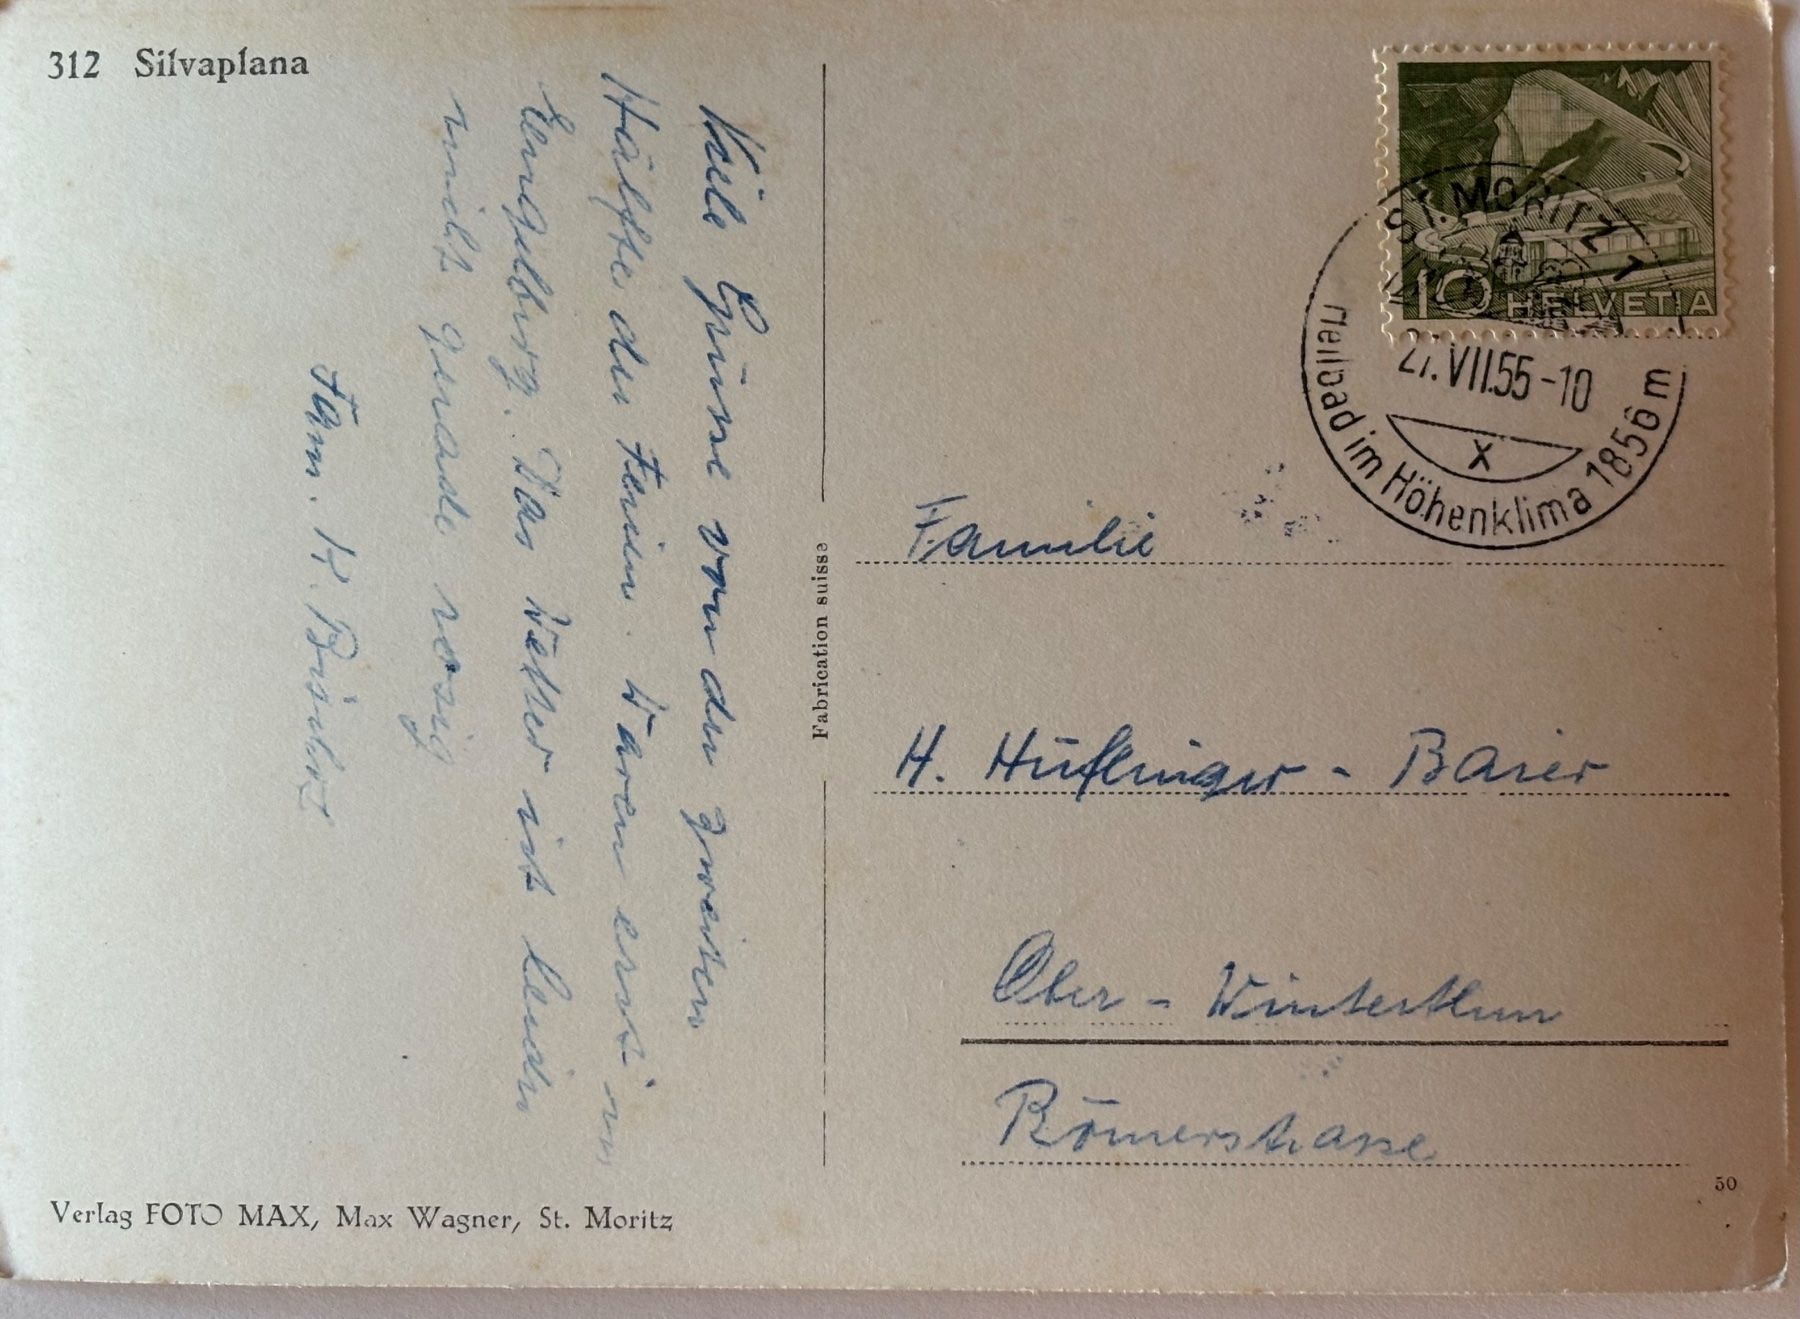 312 Silvaplana
Viele Grüsse von der zweiten
Hälfte der Ferien. Waren erst im
Engelberg. Das Wetter ist leider
nicht gerade rosig
Fam. K.
Verlag FOTO MAX, Max Wagner, St. Moritz
Fabrication suisse
10 HELVETIA
ST. MORITZ 1
VII.55-10
X
Heilbad im Höhenklima 1856 m
Familie
H. Hüflinger - Baier
Ober - Winterthur
Römerstrasse
50